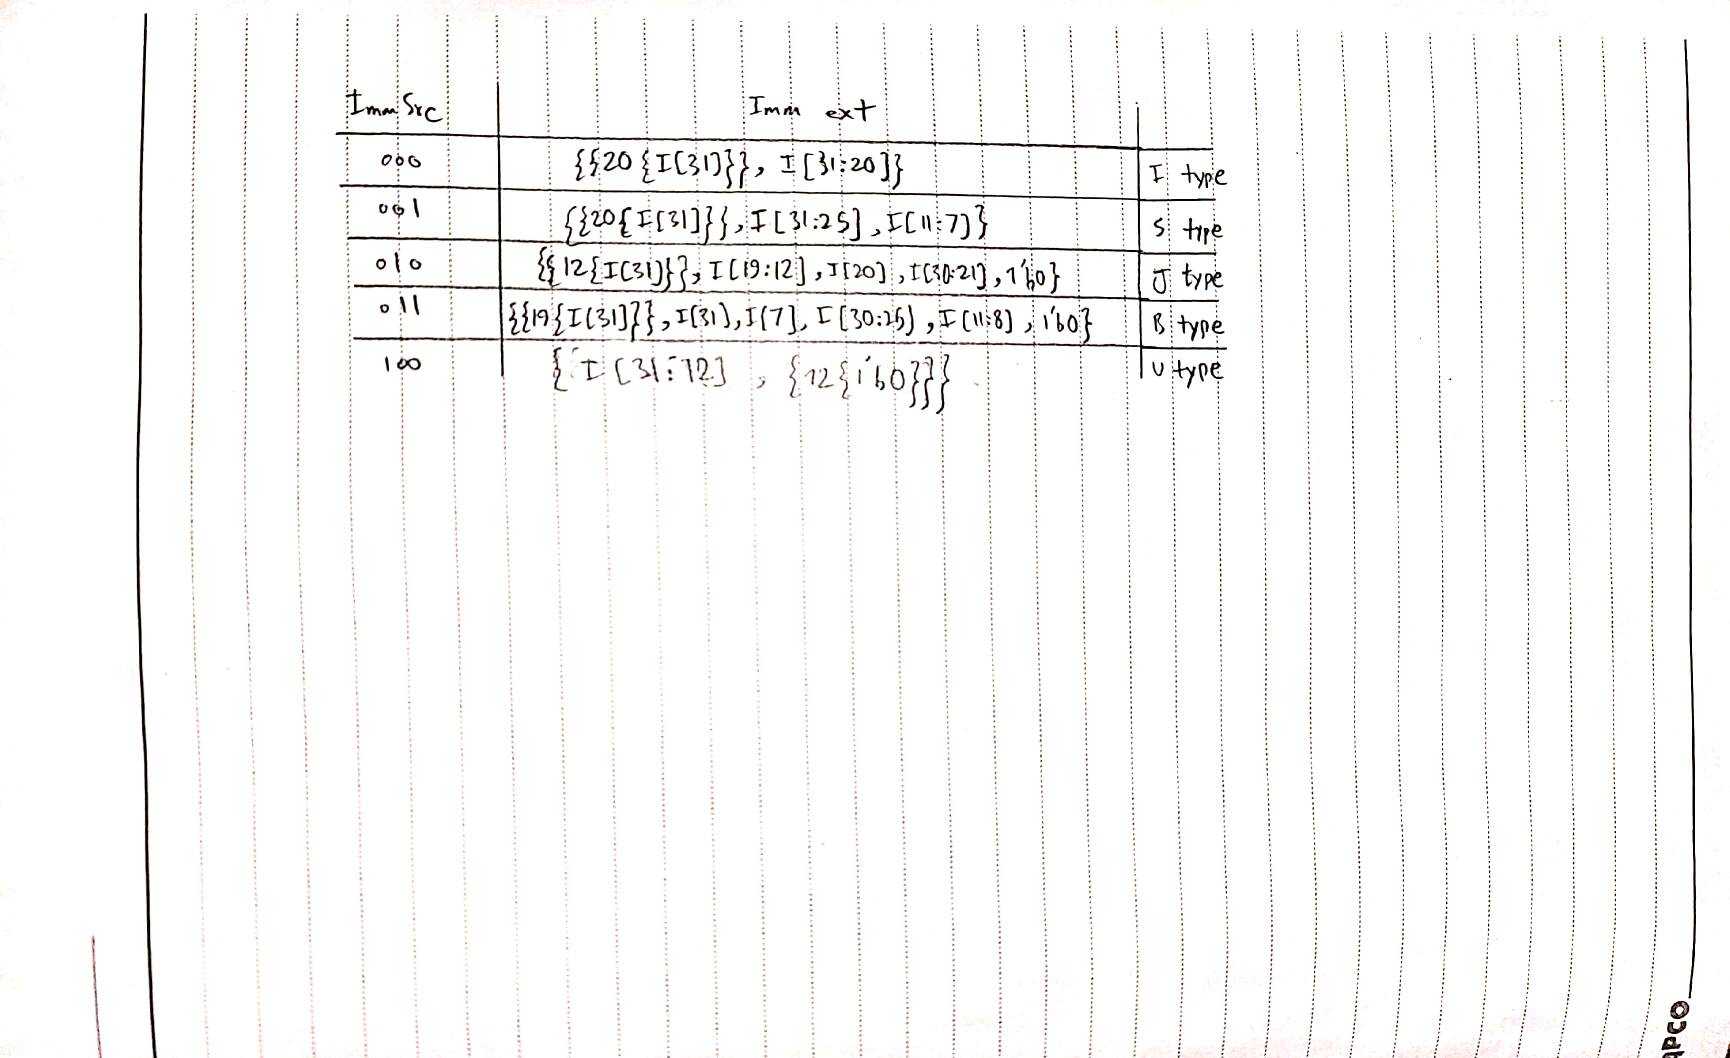 Imm Src Imm ext
000 {{20{I[31]}}, I[31:20]} I type
001 {{20{I[31]}}, I[31:25], I[11:7]} S type
010 {{12{I[31]}}, I[19:12], I[20], I[30:21], 1'b0} J type
011 {{19{I[31]}}, I[31], I[7], I[30:25], I[11:8], 1'b0} B type
100 {I[31:12], {12{1'b0}}} U type